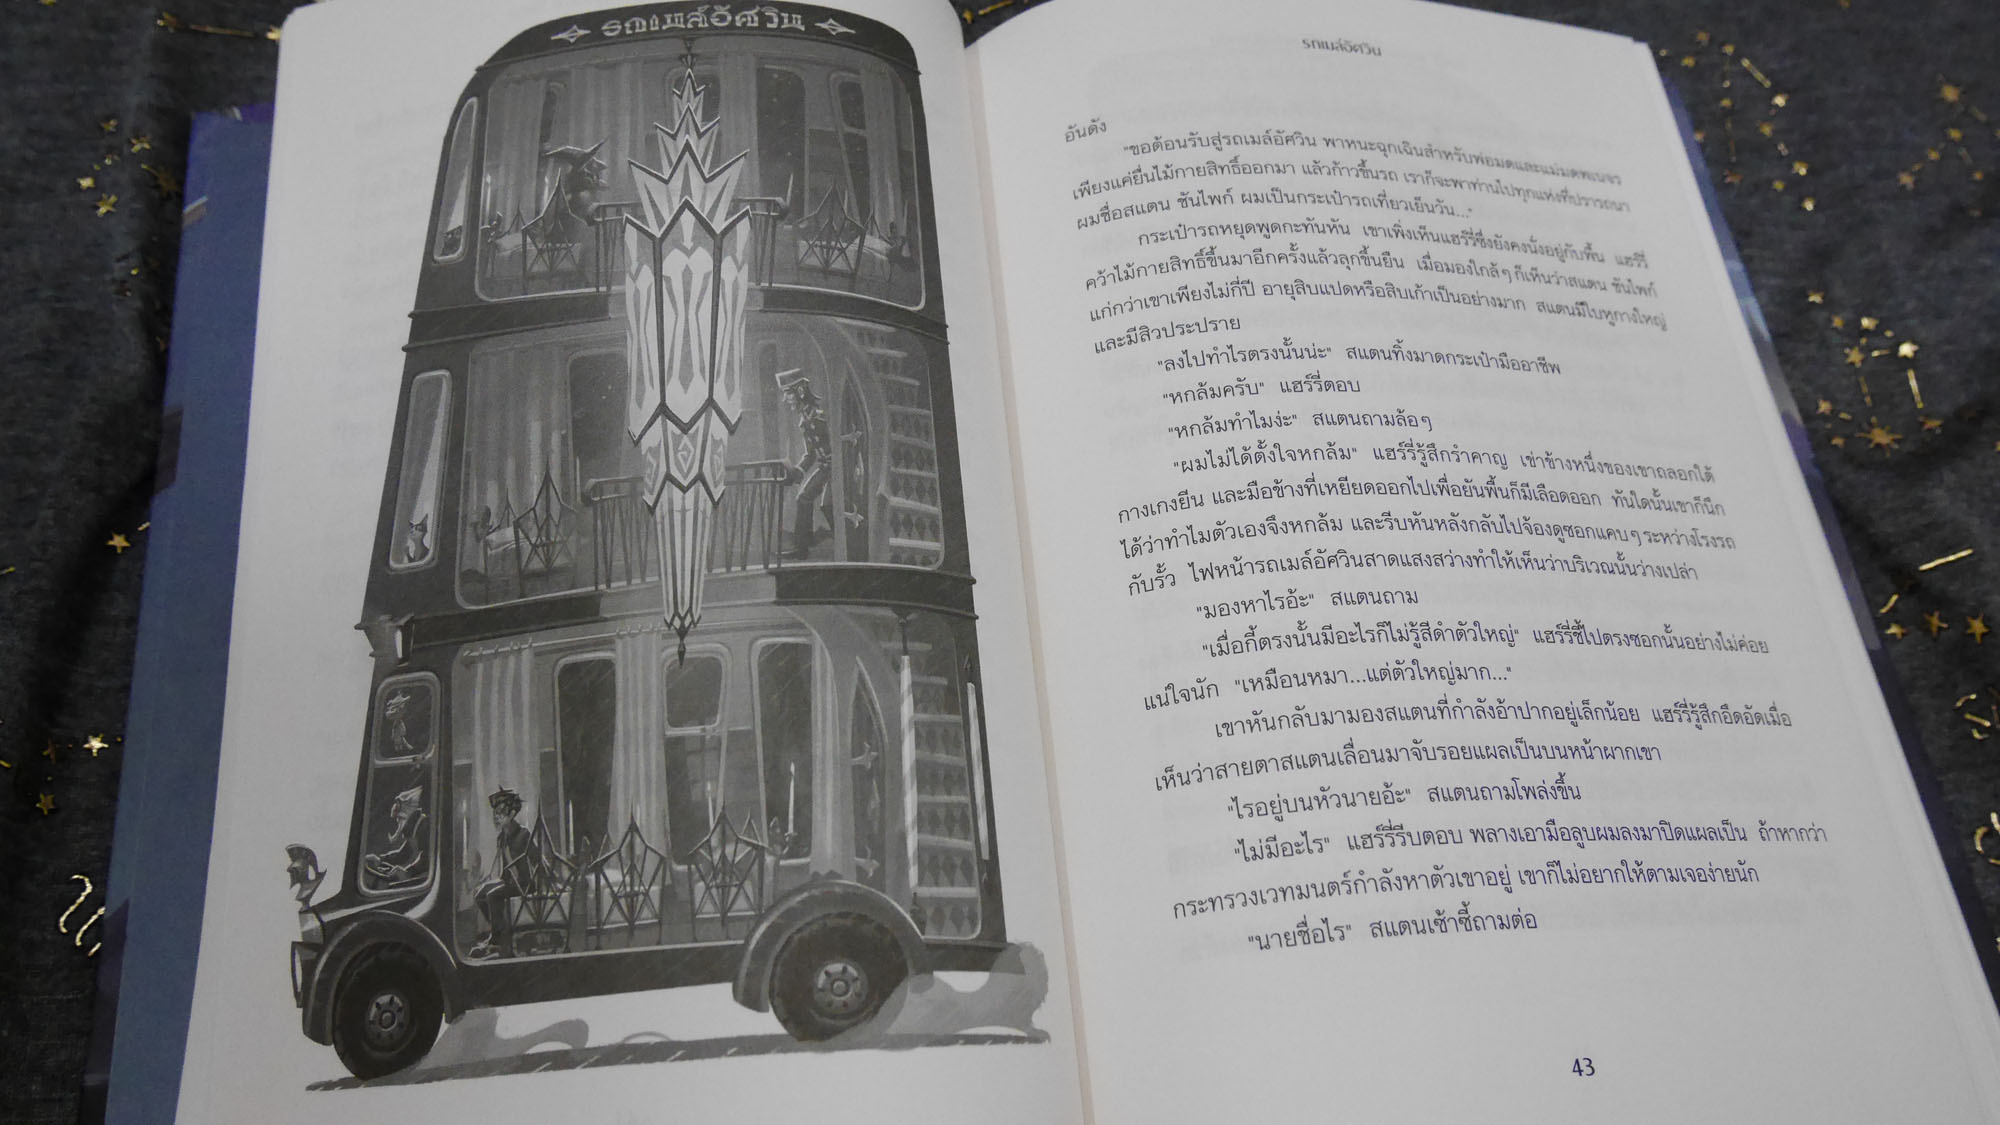 รถเมล์อัศวิน
รถเมล์อัศวิน
อันดัง
"ขอต้อนรับสู่รถเมล์อัศวิน พาหนะฉุกเฉินสำหรับพ่อมดและแม่มดพเนจร
เพียงแค่ยื่นไม้กายสิทธิ์ออกมา แล้วก้าวขึ้นรถ เราก็จะพาท่านไปทุกแห่งที่ปรารถนา
ผมชื่อสแตน ชันไพก์ ผมเป็นกระเป๋ารถเที่ยวเย็นวัน..."
กระเป๋ารถหยุดพูดกะทันหัน เขาเพิ่งเห็นแฮร์รี่ซึ่งยังคงนั่งอยู่กับพื้น แฮร์รี่
คว้าไม้กายสิทธิ์ขึ้นมาอีกครั้งแล้วลุกขึ้นยืน เมื่อมองใกล้ๆ ก็เห็นว่าสแตน ชันไพก์
แก่กว่าเขาเพียงไม่กี่ปี อายุสิบแปดหรือสิบเก้าเป็นอย่างมาก สแตนมีใบหูกางใหญ่
และมีสิวประปราย
"ลงไปทำไรตรงนั้นน่ะ" สแตนทิ้งมาดกระเป๋ามืออาชีพ
"หกล้มครับ" แฮร์รี่ตอบ
"หกล้มทำไมง่ะ" สแตนถามล้อๆ
"ผมไม่ได้ตั้งใจหกล้ม" แฮร์รี่รู้สึกรำคาญ เข่าข้างหนึ่งของเขาถลอกใต้
กางเกงยีน และมือข้างที่เหยียดออกไปเพื่อยันพื้นก็มีเลือดออก ทันใดนั้นเขาก็นึก
ได้ว่าทำไมตัวเองจึงหกล้ม และรีบหันหลังกลับไปจ้องดูซอกแคบๆ ระหว่างโรงรถ
กับรั้ว ไฟหน้ารถเมล์อัศวินสาดแสงสว่างทำให้เห็นว่าบริเวณนั้นว่างเปล่า
"มองหาไรอ้ะ" สแตนถาม
"เมื่อกี้ตรงนั้นมีอะไรก็ไม่รู้สีดำตัวใหญ่" แฮร์รี่ชี้ไปตรงซอกนั้นอย่างไม่ค่อย
แน่ใจนัก "เหมือนหมา...แต่ตัวใหญ่มาก..."
เขาหันกลับมามองสแตนที่กำลังอ้าปากอยู่เล็กน้อย แฮร์รี่รู้สึกอึดอัดเมื่อ
เห็นว่าสายตาสแตนเลื่อนมาจับรอยแผลเป็นบนหน้าผากเขา
"ไรอยู่บนหัวนายอ้ะ" สแตนถามโพล่งขึ้น
"ไม่มีอะไร" แฮร์รี่รีบตอบ พลางเอามือลูบผมลงมาปิดแผลเป็น ถ้าหากว่า
กระทรวงเวทมนตร์กำลังหาตัวเขาอยู่ เขาก็ไม่อยากให้ตามเจอง่ายนัก
"นายชื่อไร" สแตนเซ้าซี้ถามต่อ
43